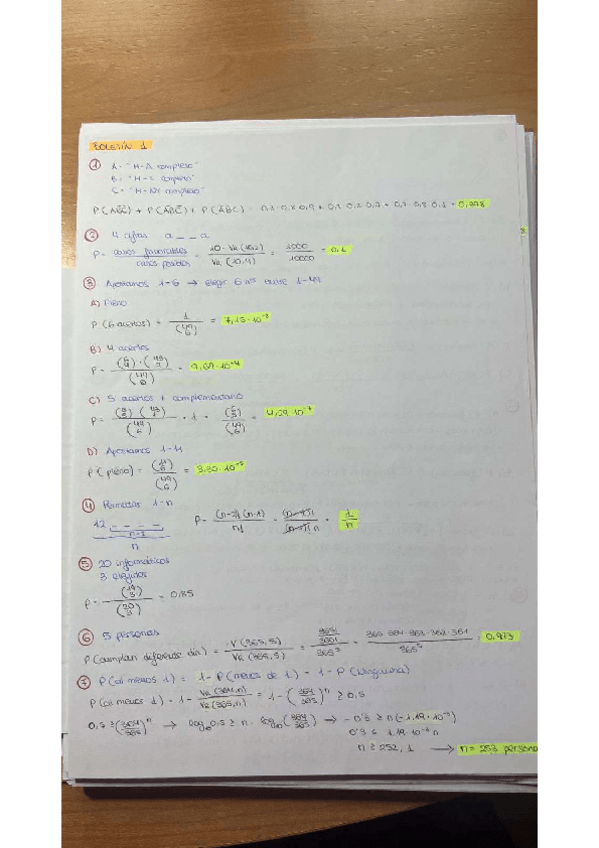 BOLETÍN 1
① A = "H-A completo"
B = "H-S completo"
C = "H-NY completo"
P(AB̄C̄) + P(ĀBC̄) + P(ĀB̄C) = 0,1 · 0,8 · 0,9 + 0,9 · 0,2 · 0,9 + 0,9 · 0,8 · 0,1 =
② 4 cifras a _ _ a
P = casos favorables / casos posibles = 10 · VR(10,2) / VR(10,4) = 1000 / 10000 = 0,1
③ Apostamos 1-6 → elegir 6 nºs entre 1-49
A) Pleno
P(6 aciertos) = 1 / (49 6) = 7,15 · 10⁻⁸
B) 4 aciertos
P = (6 4) · (43 2) / (49 6) = 9,69 · 10⁻⁴
C) 5 aciertos + complementario
P = (6 5) (43 1) / (49 6) · 1 = (6 5) / (49 6) = 4,29 · 10⁻⁷
D) Apostamos 1-11
P(pleno) = (11 6) / (49 6) = 3,30 · 10⁻⁵
④ Permutas 1-n
12 _ _ _ _
n-2
n
P = (n-2)! (n-1) / n! = (n-1)! / (n-1)! n = 1 / n
⑤ 20 informáticos
3 elegidos
P = (19 3) / (20 3) = 0,85
⑥ 5 personas
P(cumplan diferente día) = V(365,5) / VR(365,5) = 365! / 360! / 365⁵ = 365 · 364 · 363 · 362 · 361 / 365⁵ = 0,973
⑦ P(al menos 1) = 1 - P(menos de 1) = 1 - P(ninguna)
P(al menos 1) = 1 - VR(364,n) / VR(365,n) = 1 - (364/365)ⁿ ≥ 0,5
0,5 ≥ (364/365)ⁿ → log₁₀ 0,5 ≥ n · log₁₀ (364/365) → -0,3 ≥ n (-1,19 · 10⁻³)
0,3 ≤ 1,19 · 10⁻³ n
n ≥ 252,1 → n = 253 persona